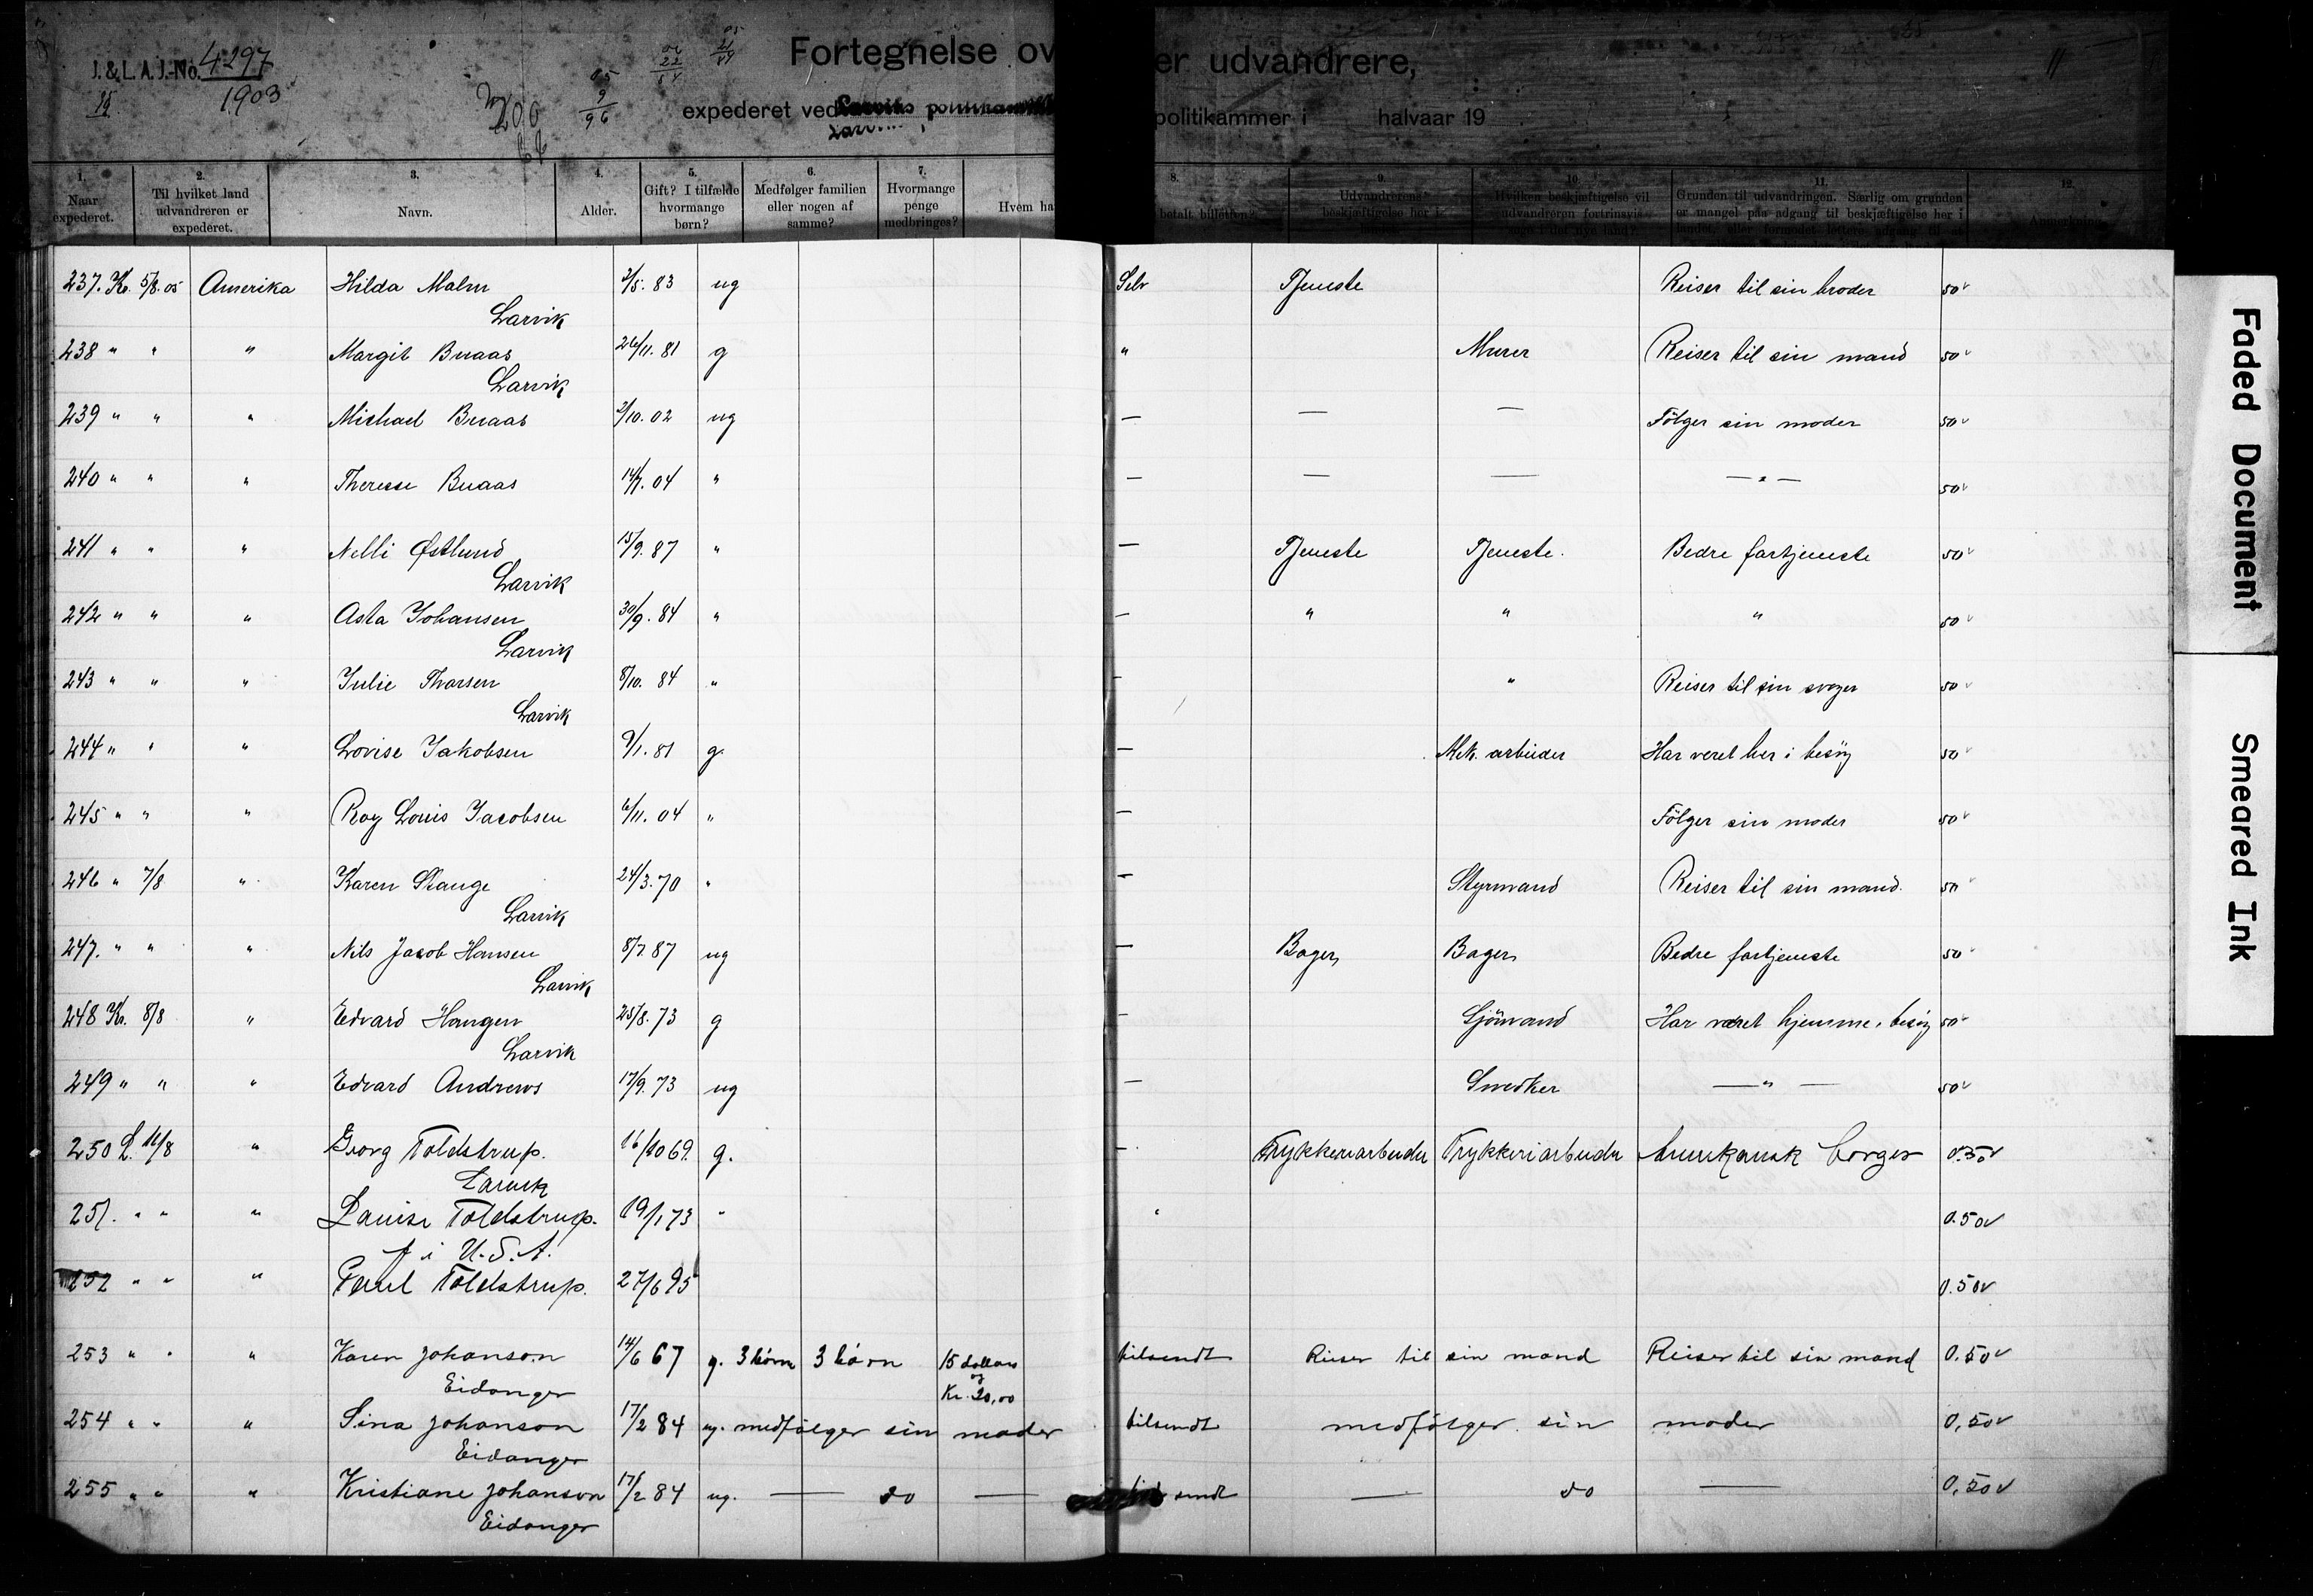 J. & L. A. J.-No. 4297
1903
Fortegnelse over udvandrere,
expederet ved Larviks politikammer i halvaar 19
1. Naar expederet.
2. Til hvilket land udvandreren er expederet.
3. Navn.
4. Alder.
5. Gift? I tilfælde hvormange børn?
6. Medfølger familien eller nogen af samme?
7. Hvormange penge medbringes?
8. Hvem har betalt billetten?
9. Udvandrerens beskjæftigelse her i
10. Hvilken beskjæftigelse vil udvandreren fortrinsvis søge i det nye land?
11. Grunden til udvandringen. Særlig om grunden er mangel paa adgang til beskjæftigelse her i landet, eller formodet lettere adgang til at
12. Anmerkning
237. Kr. 5/8. 05 Amerika Hilda Malm 2/5. 83 ug Selv Tjeneste Reiser til sin broder 50
Larvik
238 " " " Margit Buaas 26/11. 81 g " Murer Reiser til sin mand 50
Larvik
239 " " " Michael Buaas 3/10. 02 ug — — — Følger sin moder 50
240 " " " Therese Buaas 14/7. 04 " — — — — " — 50
241 " " " Nelli Østlund 15/9. 87 " — Tjeneste Tjeneste. Bedre fortjeneste 50
Larvik
242 " " " Asta Johansen 30/9. 84 " — " " " 50
Larvik
243 " " " Julie Thorsen 8/10. 84 " — " Reiser til sin svoger 50
Larvik
244 " " " Lovise Jakobsen 9/1. 81 g. — Mek. arbeider Har veret her i besøg 50
245 " " " Roy Louis Jacobsen 6/11. 04 " — Følger sin moder 50
246 " 7/8 " Karen Stange 24/3. 70 " — Styrmand Reiser til sin mand. 50
Larvik
247. " " " Nils Jacob Hansen 8/7. 87 ug — Bager Bager Bedre fortjeneste 50
Larvik
248 Kr. 8/8 " Edvard Haugen 25/8. 73 g — Sjömand Har været hjemme i besøg 50
Larvik
249 " " " Edvard Andrews 17/9. 73 ug — Snedker — " — 50
250 L. 11/8 " Georg Toldstrup. 16/10 69. g. — Trykkeriarbeider Trykkeriarbeider Amerikansk borger 0.50
Larvik
251. " " " Louise Toldstrup. 19/1 73 " " 0.50
f i U.S.A.
252 " " " Paul Toldstrup. 27/6 95 0.50
253 " " " Karen Johanson 14/6 67 g. 3 börn 3 börn 15 dollars og Kr. 20,00 tilsendt Reiser til sin mand Reiser til sin mand 0.50
Eidanger
254 " " " Sina Johanson 17/2 84 ug. medfölger sin moder tilsendt medfölger sin moder 0,50
Eidanger
255 " " " Kristiane Johanson 17/2 84 ug. — do — tilsendt — do — 0,50
Eidanger
Faded Document
Smeared Ink